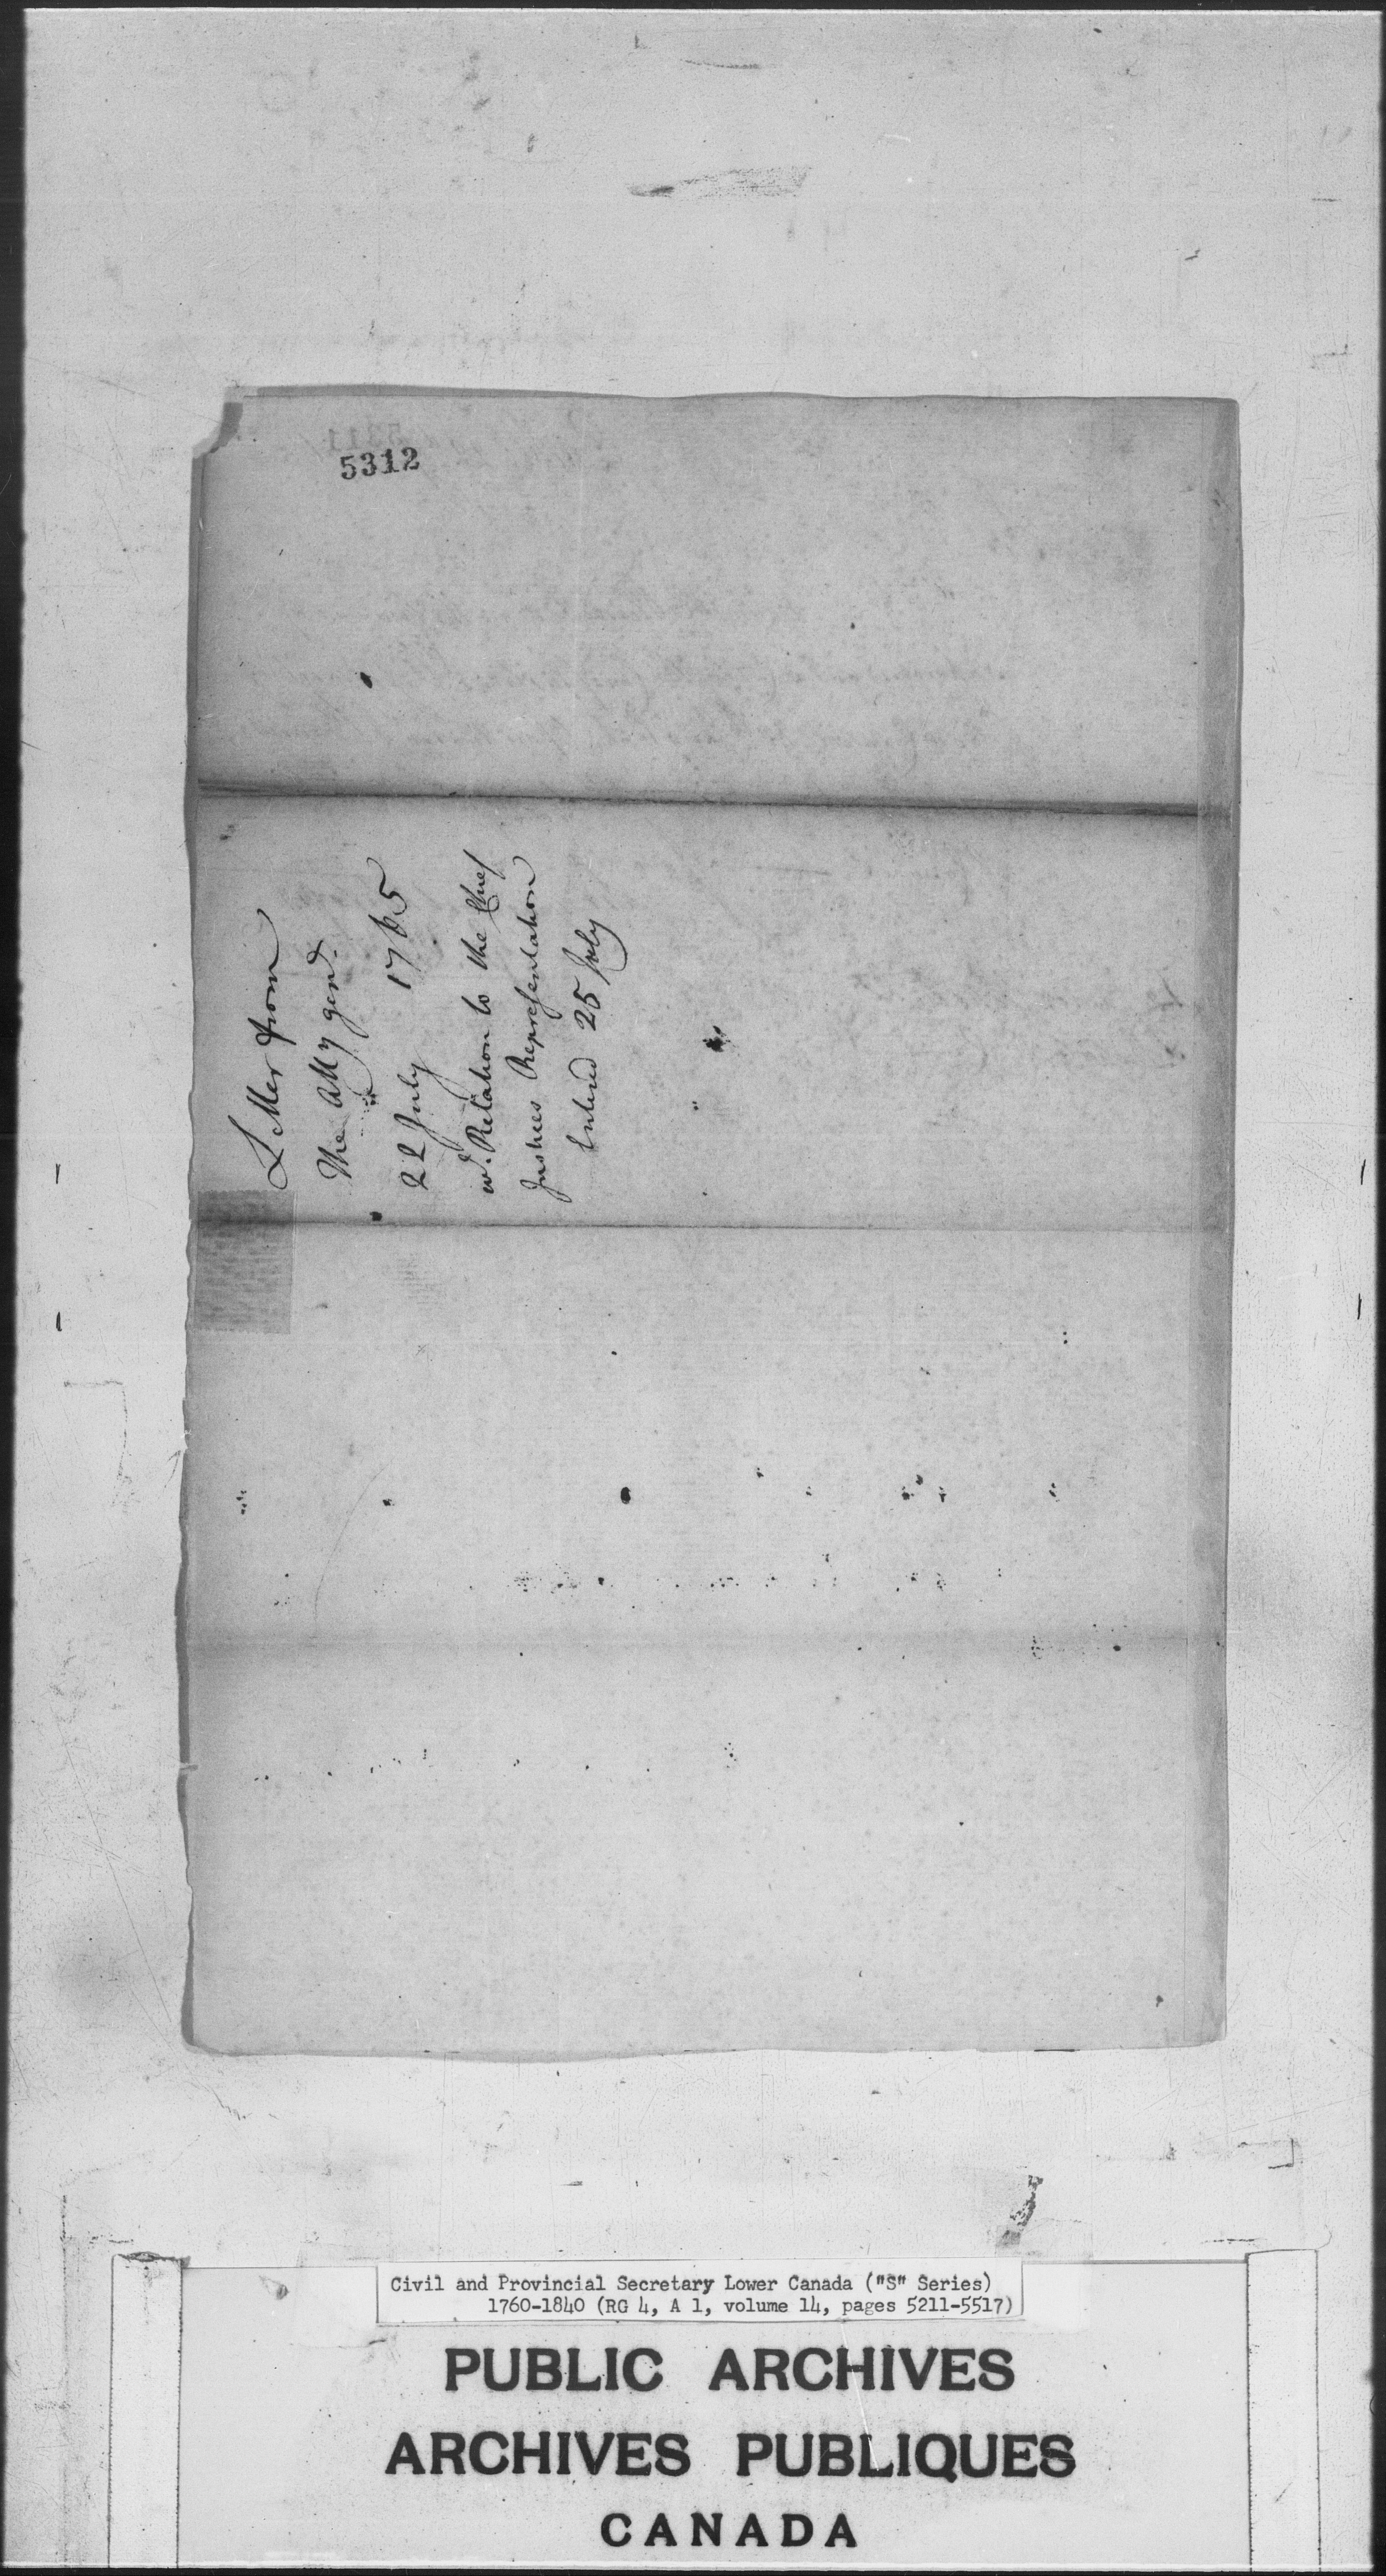 5312
Letter from
The Atty genl.
22 July 1765
wt. Relation to the Chief
Justices Representation
Entered 25 July
Civil and Provincial Secretary Lower Canada ("S" Series)
1760-1840 (RG 4, A 1, volume 14, pages 5211-5517)
PUBLIC ARCHIVES
ARCHIVES PUBLIQUES
CANADA